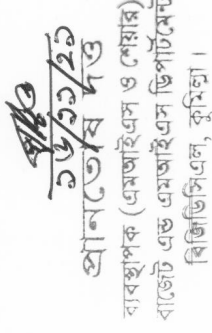 ১৬/১১/২১
প্রানতোষ দত্ত
ব্যবস্থাপক (এমআইএস ও শেয়ার)
বাজেট এন্ড এমআইএস ডিপার্টমেন্ট
বিজিডিসিএল, কুমিল্লা।